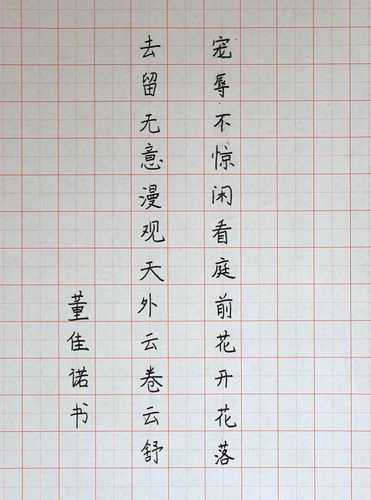 宠辱不惊闲看庭前花开花落
去留无意漫观天外云卷云舒
董佳诺书